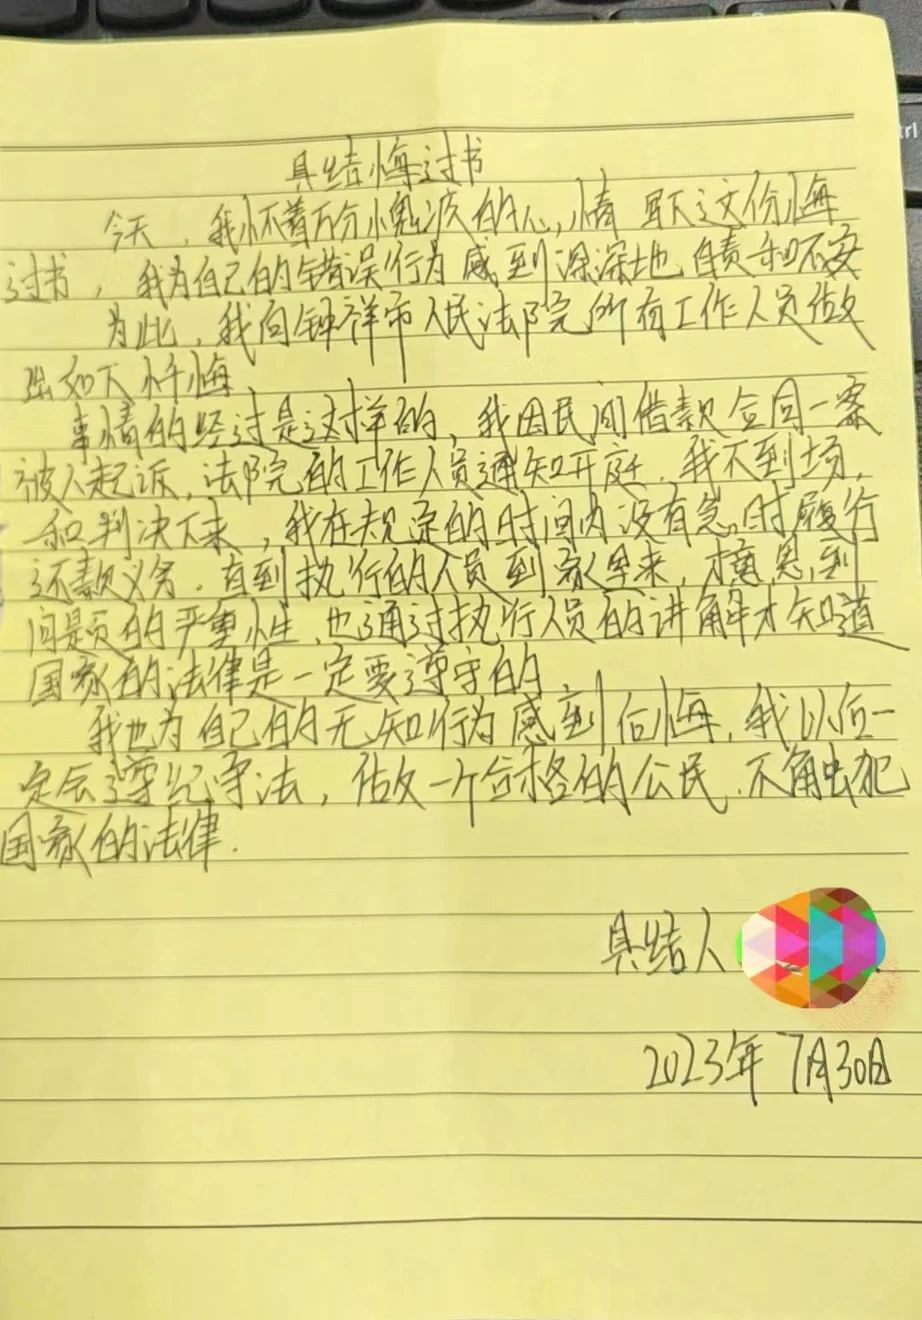 具结悔过书
今天，我怀着万分懊恼的心情 写下这份悔
过书，我为自己的错误行为感到深深地自责和不安
为此，我向钟祥市人民法院所有工作人员做
出如下忏悔、
事情的经过是这样的，我因民间借款合同一案
被人起诉，法院的工作人员通知开庭，我不到场，
和判决下来，我在规定的时间内没有及时履行
还款义务．直到执行的人员到家里来，才意思到
问题的严重性，也通过执行人员的讲解才知道
国家的法律是一定要遵守的，
我也为自己的无知行为感到后悔，我以后一
定会遵纪守法，做一个合格的公民．不触犯
国家的法律．
具结人
2023年7月30日
ctrl